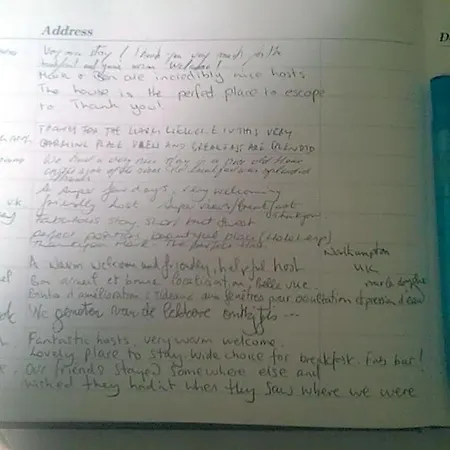 Address
D
Very nice stay! Thank you very much for the
and your warm welcome!
Mark & Ben are incredibly nice hosts
The house is the perfect place to escape
to Thank you!
THANKS FOR THE WARM WELCOME. IT IS VERY
CHARMING PLACE VIEW AND BREAKFAST ARE SPLENDID
We had a very nice stay in a
A super few days, very welcoming
friendly host super views/breakfast
Fabulous stay, short but sweet
perfect position, beautiful place
Thank you Mark. The perfect
Northampton
UK
A warm welcome and friendly, helpful host
Bon accueil et bonne localisation, belle vue.
d'amélioration: rideaux aux fenêtres pour occultation et pression d'eau
We genoten van de lekkere ontbijtjes ...
Fantastic hosts, very warm welcome.
Lovely place to stay. Wide choice for breakfast. Fab bar!
Our friends stayed somewhere else and
wished they hadn't when they saw where we were